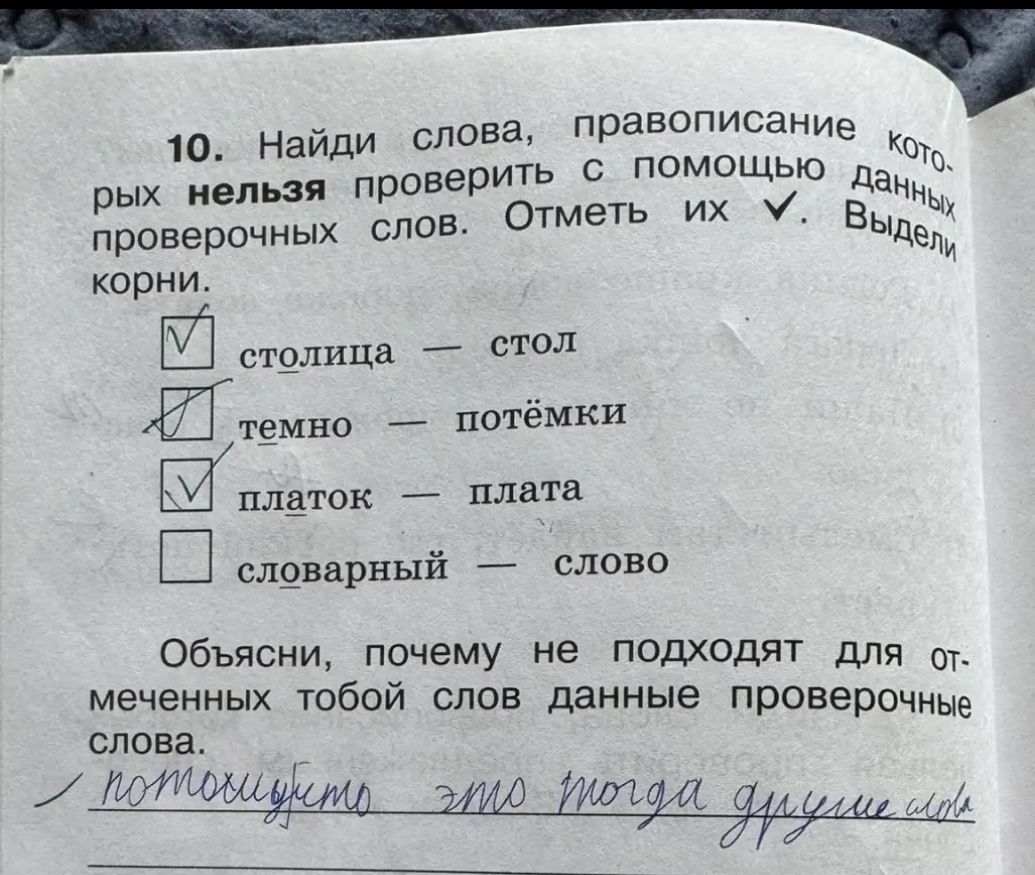 10. Найди слова, правописание кото-
рых нельзя проверить с помощью данных
проверочных слов. Отметь их ✓. Выдели
корни.
столица — стол
темно — потёмки
платок — плата
словарный — слово
Объясни, почему не подходят для от-
меченных тобой слов данные проверочные
слова.
потомучто это тогда другие слова